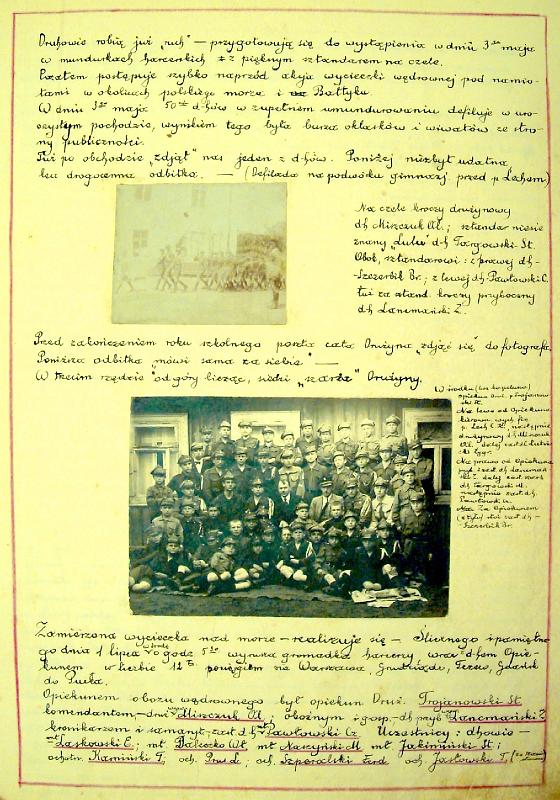 Druhowie robią już „ruch" — przygotowują się do wystąpienia w dniu 3go maja
w mundurkach harcerskich z pięknym sztandarem na czele.
Pozatem postępuje szybko naprzód akcja wycieczki wędrownej pod namio-
tami w okolicach polskiego morza i Bałtyku.
W dniu 3go maja 50ciu d-hów w zupełnem umundurowaniu defiluje w uro-
czystym pochodzie, wynikiem tego była burza oklasków i wiwatów ze stro-
ny publiczności.
Tuż po obchodzie „zdjął" nas jeden z d-hów. Poniżej niezbyt udatna
lecz drogocenna odbitka. — (Defilada na podwórku gimnazj. przed p. Lechem)
Na czele kroczy drużynowy
dh Miszczuk Al.; sztandar niesie
znany „Lulu" dh Targowski St.
Obok, sztandarowi: z prawej dh-
Szczerbik Br.; z lewej dh Pawłowski C.
tuż za sztand. kroczy przyboczny
dh Lancmański Z.
Przed zakończeniem roku szkolnego poszła cała Drużyna „zdjąć się" do fotografa.
Poniższa odbitka „mówi sama za siebie" —
W trzecim rzędzie od góry licząc, siedzi „szarża" Drużyny.
W środku (bez kapelusza)
opiekun Druż. p. Trojanowski
St.
Na lewo od Opiekuna
kierown. wych. fiz.
p. Lech C. K., następnie
drużynowy dh Miszczuk
Al. dalej zast.
Na prawo od Opiekuna
zast. dh Lancmań
ski Z. dalej zast.
dh Targowski St.
następnie zast. dh
Pawłowski Cz.
Za Opiekunem
(z tyłu) stoi zast. dh-
Szczerbik Br.
Zamierzona wycieczka nad morze — realizuje się — Ślicznego i pamiętne-
go dnia 1 lipca (środa) o godz. 5 30 wyrusza gromadka harcerzy wraz z d-hem Opie-
kunem w liczbie 12 na Warszawa, Grudziądz, Tczew, Gdańsk
do Pucka.
Opiekunem obozu wędrownego był opiekun Druż. Trojanowski St.
komendantem — druż. Miszczuk Al., oboźnym i gosp. dh przyb. Lancmański Z.
kronikarzem i sanitarj. zast. dh Pawłowski Cz. Uczestnicy: dhowie —
Laskowski E.; mł. Daleczko Wł. mł. Naszyński M. mł. Jakimiński H.;
ochotn. Kamiński T.; och. Prus d.; och. Szporalski Ferd. och. Jasłowski T.